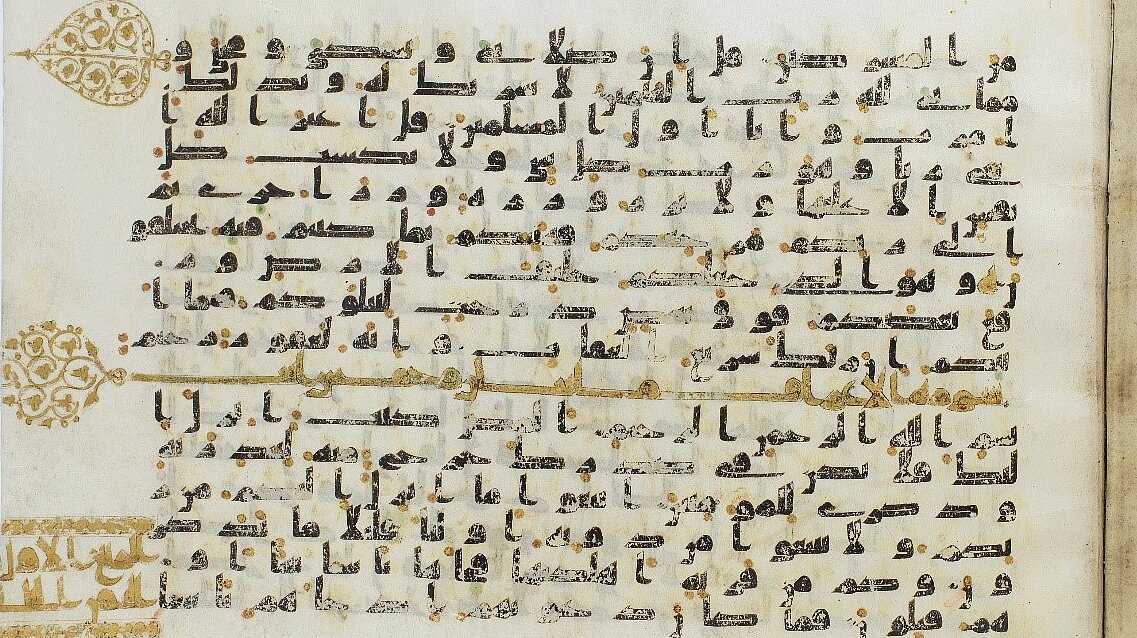 من المشركين قل ان صلاتي ونسكي ومحيي و
مماتي لله رب العلمين لا شريك له وبذلك
امرت وانا اول المسلمين قل اغير الله ا
بغي ربا وهو رب كل شي ولا تكسب كل
نفس الا عليها ولا تزر وازرة وزر اخرى ثم
الى ربكم مرجعكم فينبئكم بما كنتم فيه تختلفو
ن وهو الذي جعلكم خلئف الارض ور
فع بعضكم فوق بعض درجت ليبلوكم فيما ا
تيكم ان ربك سريع العقاب وانه لغفور رحيم
سورة الاعراف مئتين وخمس ايات
بسم الله الرحمن الرحيم المص كتب انزل ا
ليك فلا يكن في صدرك حرج منه لتنذر به
وذكرى للمؤمنين اتبعوا ما انزل اليكم من ر
بكم ولا تتبعوا من دونه اوليا قليلا ما تذكر
ون وكم من قرية اهلكنها فجاها باسنا بيتا ا
و هم قائلون فما كان دعويهم اذ جاهم باسنا